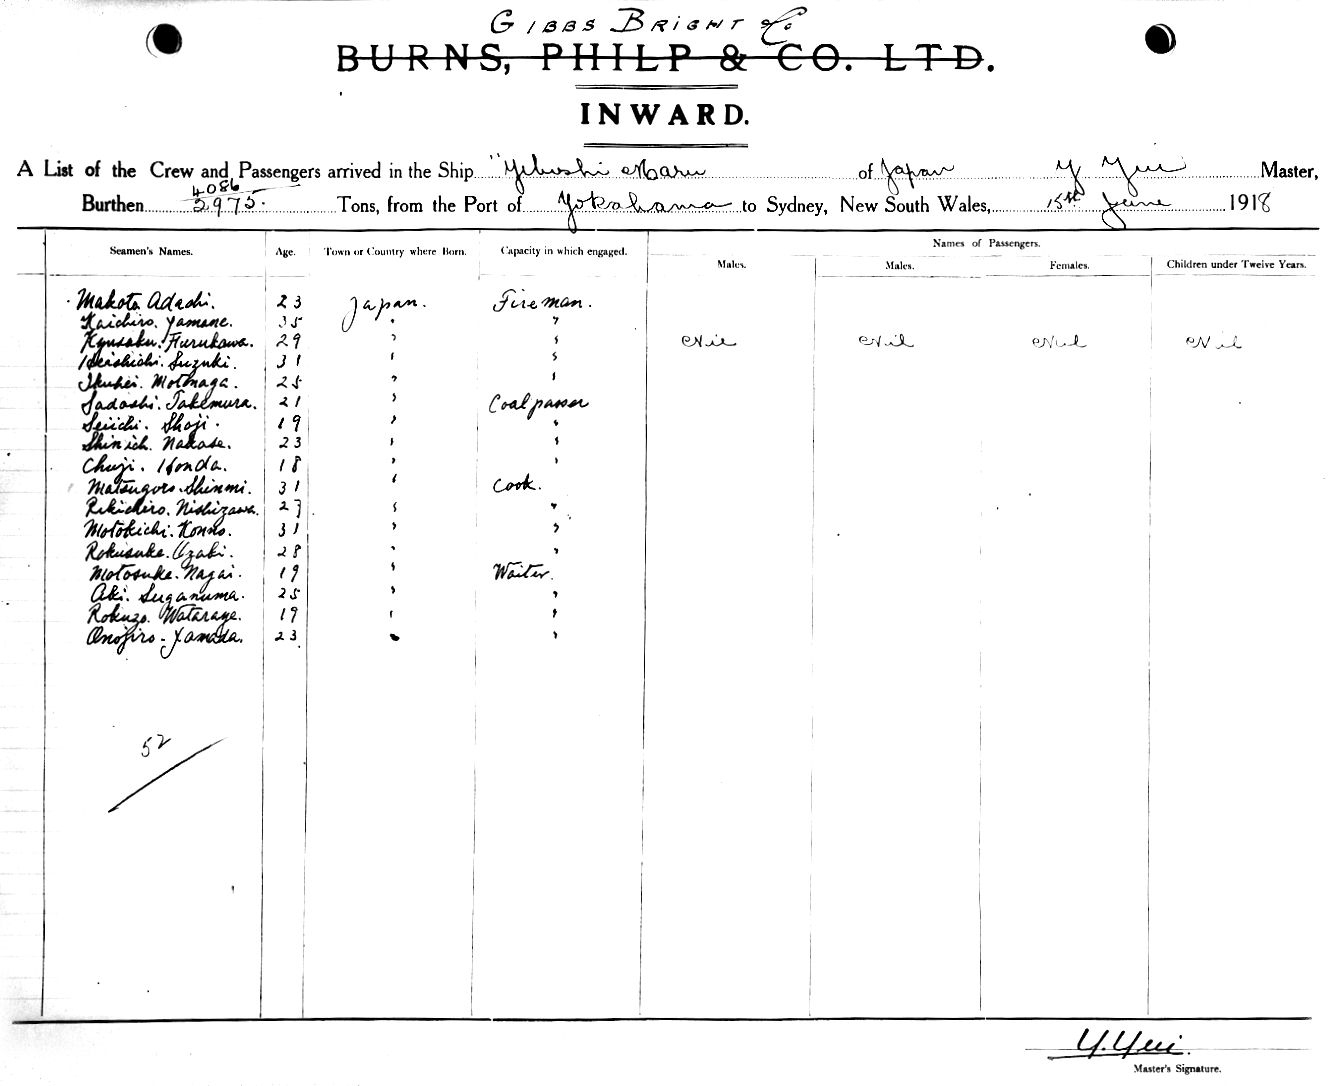 GIBBS BRIGHT & Co
BURNS, PHILP & CO. LTD.
INWARD.
A List of the Crew and Passengers arrived in the Ship "Yeboshi Maru of Japan Y Yui Master,
4086
Burthen 2975. Tons, from the Port of Yokahama to Sydney, New South Wales, 15th June 1918
Names of Passengers.
Seamen's Names. Age. Town or Country where Born. Capacity in which engaged.
Males. Males. Females. Children under Twelve Years.
Makoto Adachi. 23 Japan. Fireman.
Kaichiro. Yamane. 35 " "
Kyusaku. Furukawa. 29 " " Nil Nil Nil Nil
Suzuki. 31 " "
Ikuhei. Motonaga. 25 " "
Sadashi. Takemura. 21 " Coalpasser
Seiichi. Shoji. 19 " "
Shinich. Nakase. 23 " "
Chuji. Honda. 18 " "
Matsugoro. Shinmi. 31 " Cook.
Rikichiro. Nishizawa. 27 " "
Motokichi. Konno. 31 " "
Rokusuke. Ozaki. 28 " "
Motosuke. Nagai. 19 " Waiter.
Aki. Suganuma. 25 " "
Rokuzo. Watanaye. 19 " "
Onojiro. Yamada. 23 " "
52
Y. Yui.
Master's Signature.